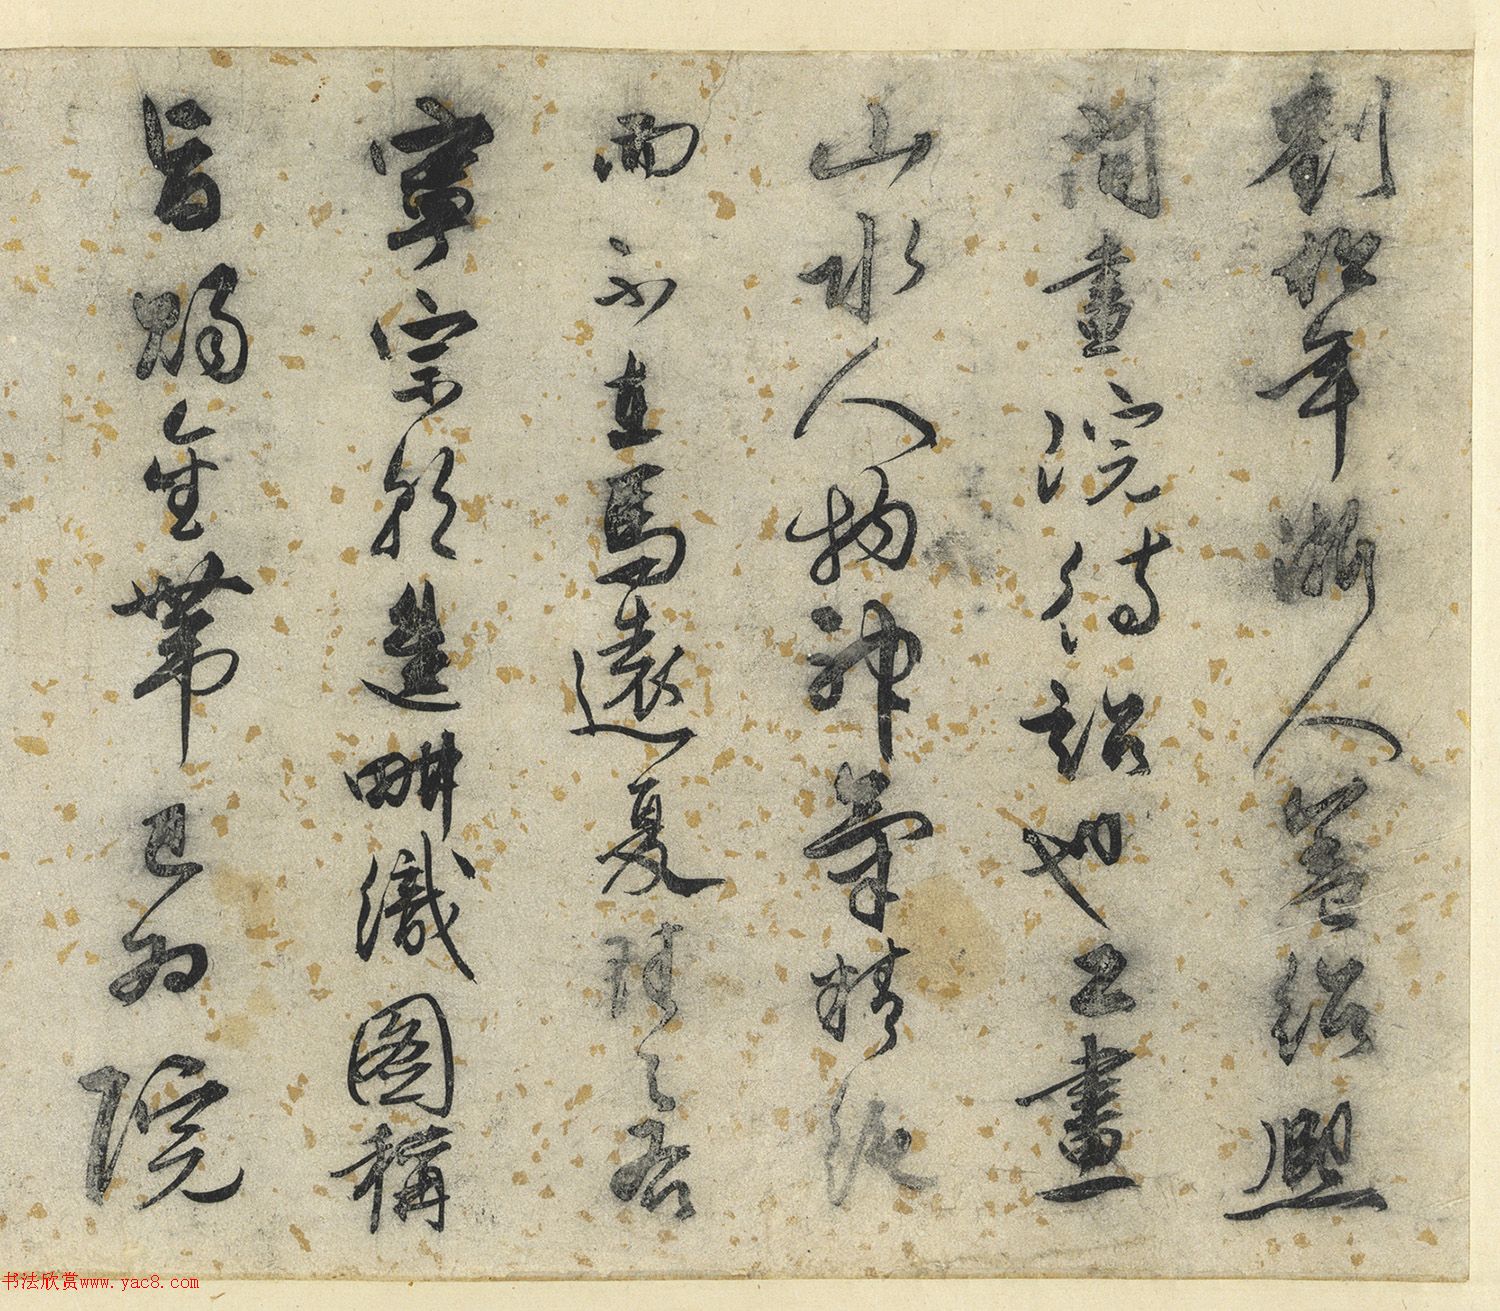 劉松年浙人蓋紹熙
間畫院待詔也工畫
山水人物神氣精絕
而不在馬遠夏珪之右
寧宗朝進耕織圖稱
旨賜金帶已為院
书法欣赏www.yac8.com